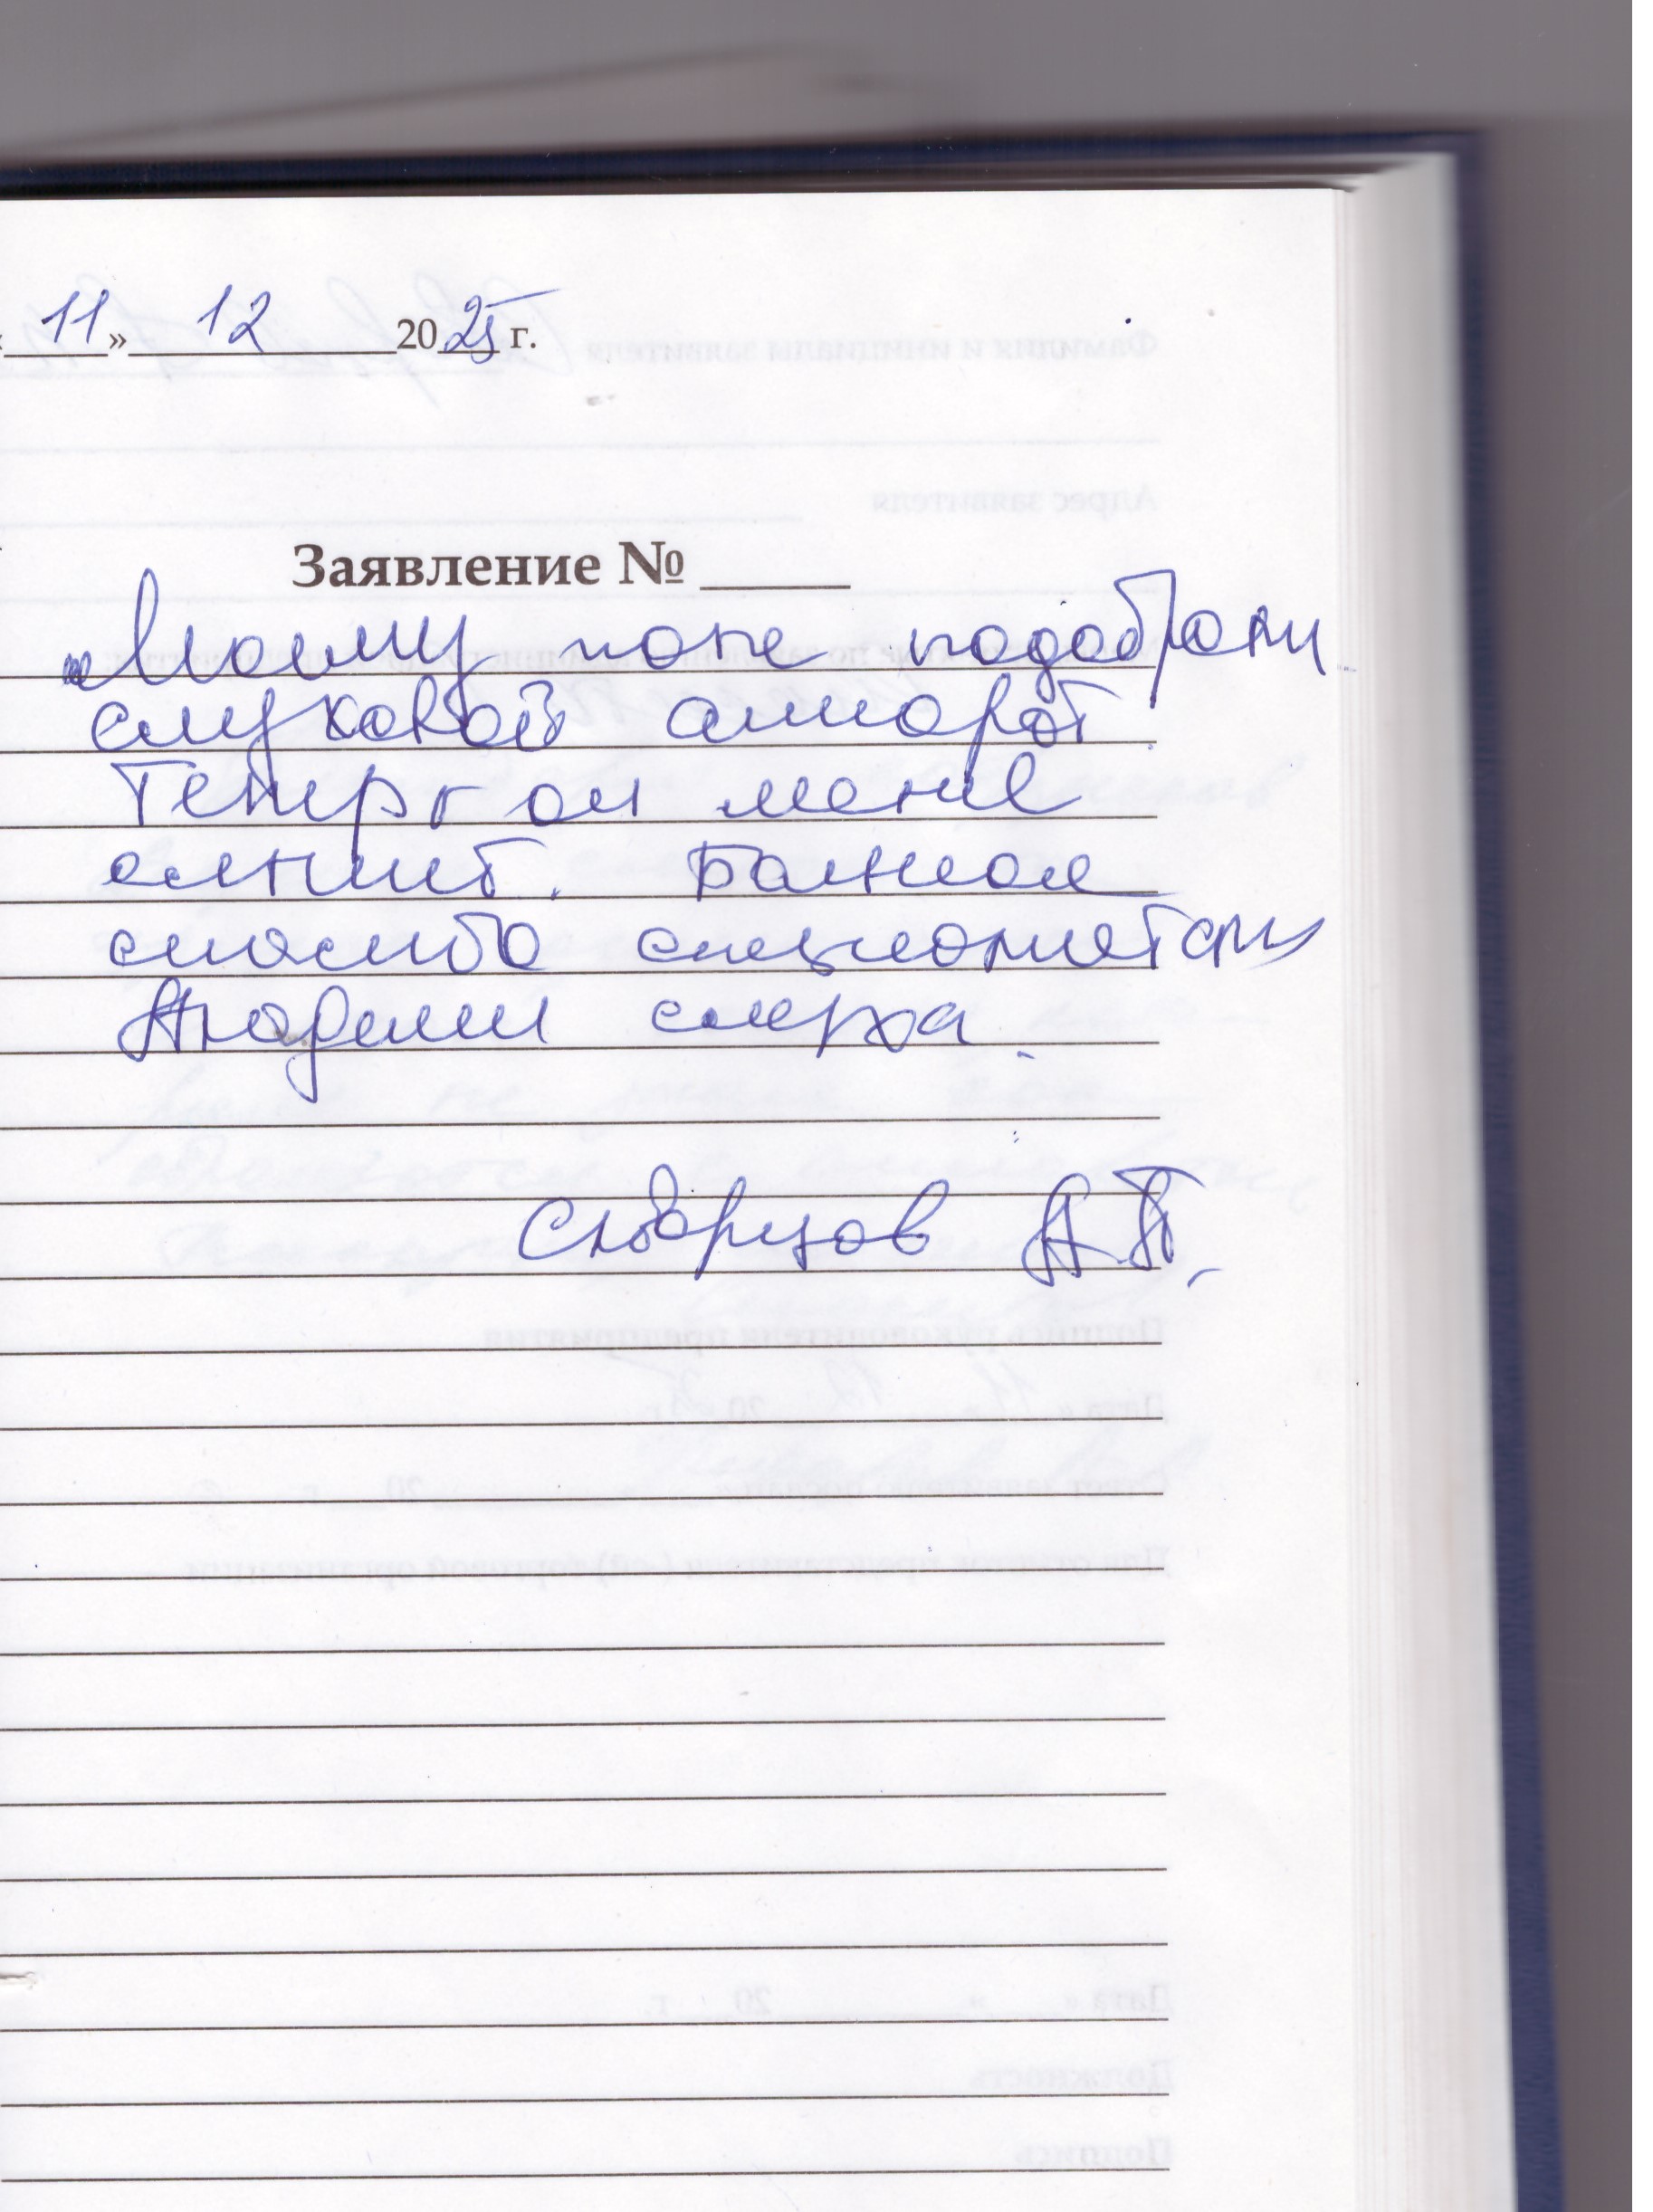 «11» 12 2025 г.
Заявление №
Моему папе подобрали
слуховой аппарат.
Теперь он меня
слышит. Большое
спасибо специалистам
Академии слуха.
Скворцов А.П.